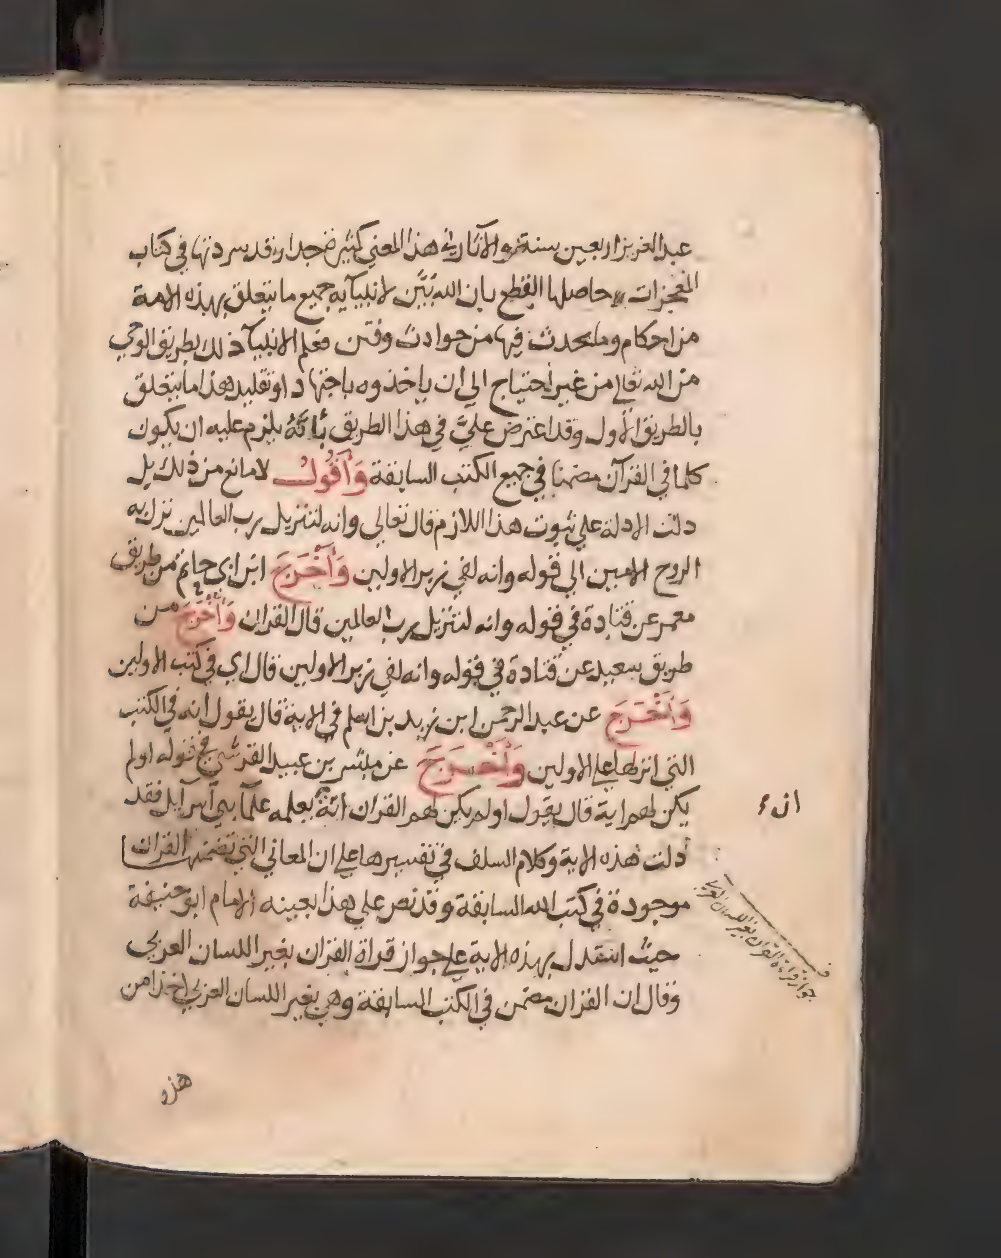 عبد العزيز اربعين سنة والاثار في هذا المعنى كثيرة جدا وقد سردتها في كتاب
المعجزات وحاصلها القطع بان الله بين لانبيآيه جميع ما يتعلق بهذه الامة
من احكام وما يحدث فيها من حوادث وفتن فعلم الانبيآ ذلك بطريق الوحي
من الله تعالى من غير احتياج الى أن ياخذوه باجتهاد او تقليد هذا ما يتعلق
بالطريق الأول وقد اعترض عليَّ في هذا الطريق بأنَّهُ يلزم عليه ان يكون
كلما في القرآن مضمنا في جميع الكتب السابقة وَأَقُولُ لا مانع من ذلك بل
دلت الادلة على ثبوت هذا اللازم قال تعالى وانه لتنزيل رب العالمين نزل به
الروح الامين الى قوله وانه لفي زبر الاولين وَأَخْرَجَ ابن ابي حاتم من طريق
معمر عن قتادة في قوله وانه لتنزيل رب العالمين قال القران وَأَخْرَجَ من
طريق سعيد عن قتادة في قوله وانه لفي زبر الاولين قال اي في كتب الاولين
وَأَخْرَجَ عن عبد الرحمن ابن زيد بن اسلم في الاية قال يقول انه في الكتب
التي انزلها على الاولين وَأَخْرَجَ عن مبشر بن عبيد القرشي في قوله اولم
يكن لهم اية قال يقول اولم يكن لهم القران اية يعلمه علمآ بني اسرآيل فقد
دلت هذه الاية وكلام السلف في تفسيرها على ان المعاني التي تضمنها القران
موجودة في كتب الله السابقة وقد نص على هذا بعينه الامام ابو حنيفة
حيث استدل بهذه الاية على جواز قراة القران بغير اللسان العربى
وقال ان القران مضمن في الكتب السابقة وهي بغير اللسان العربي اخذا من
هذه
جواز قراءة القران بغير اللسان العربي